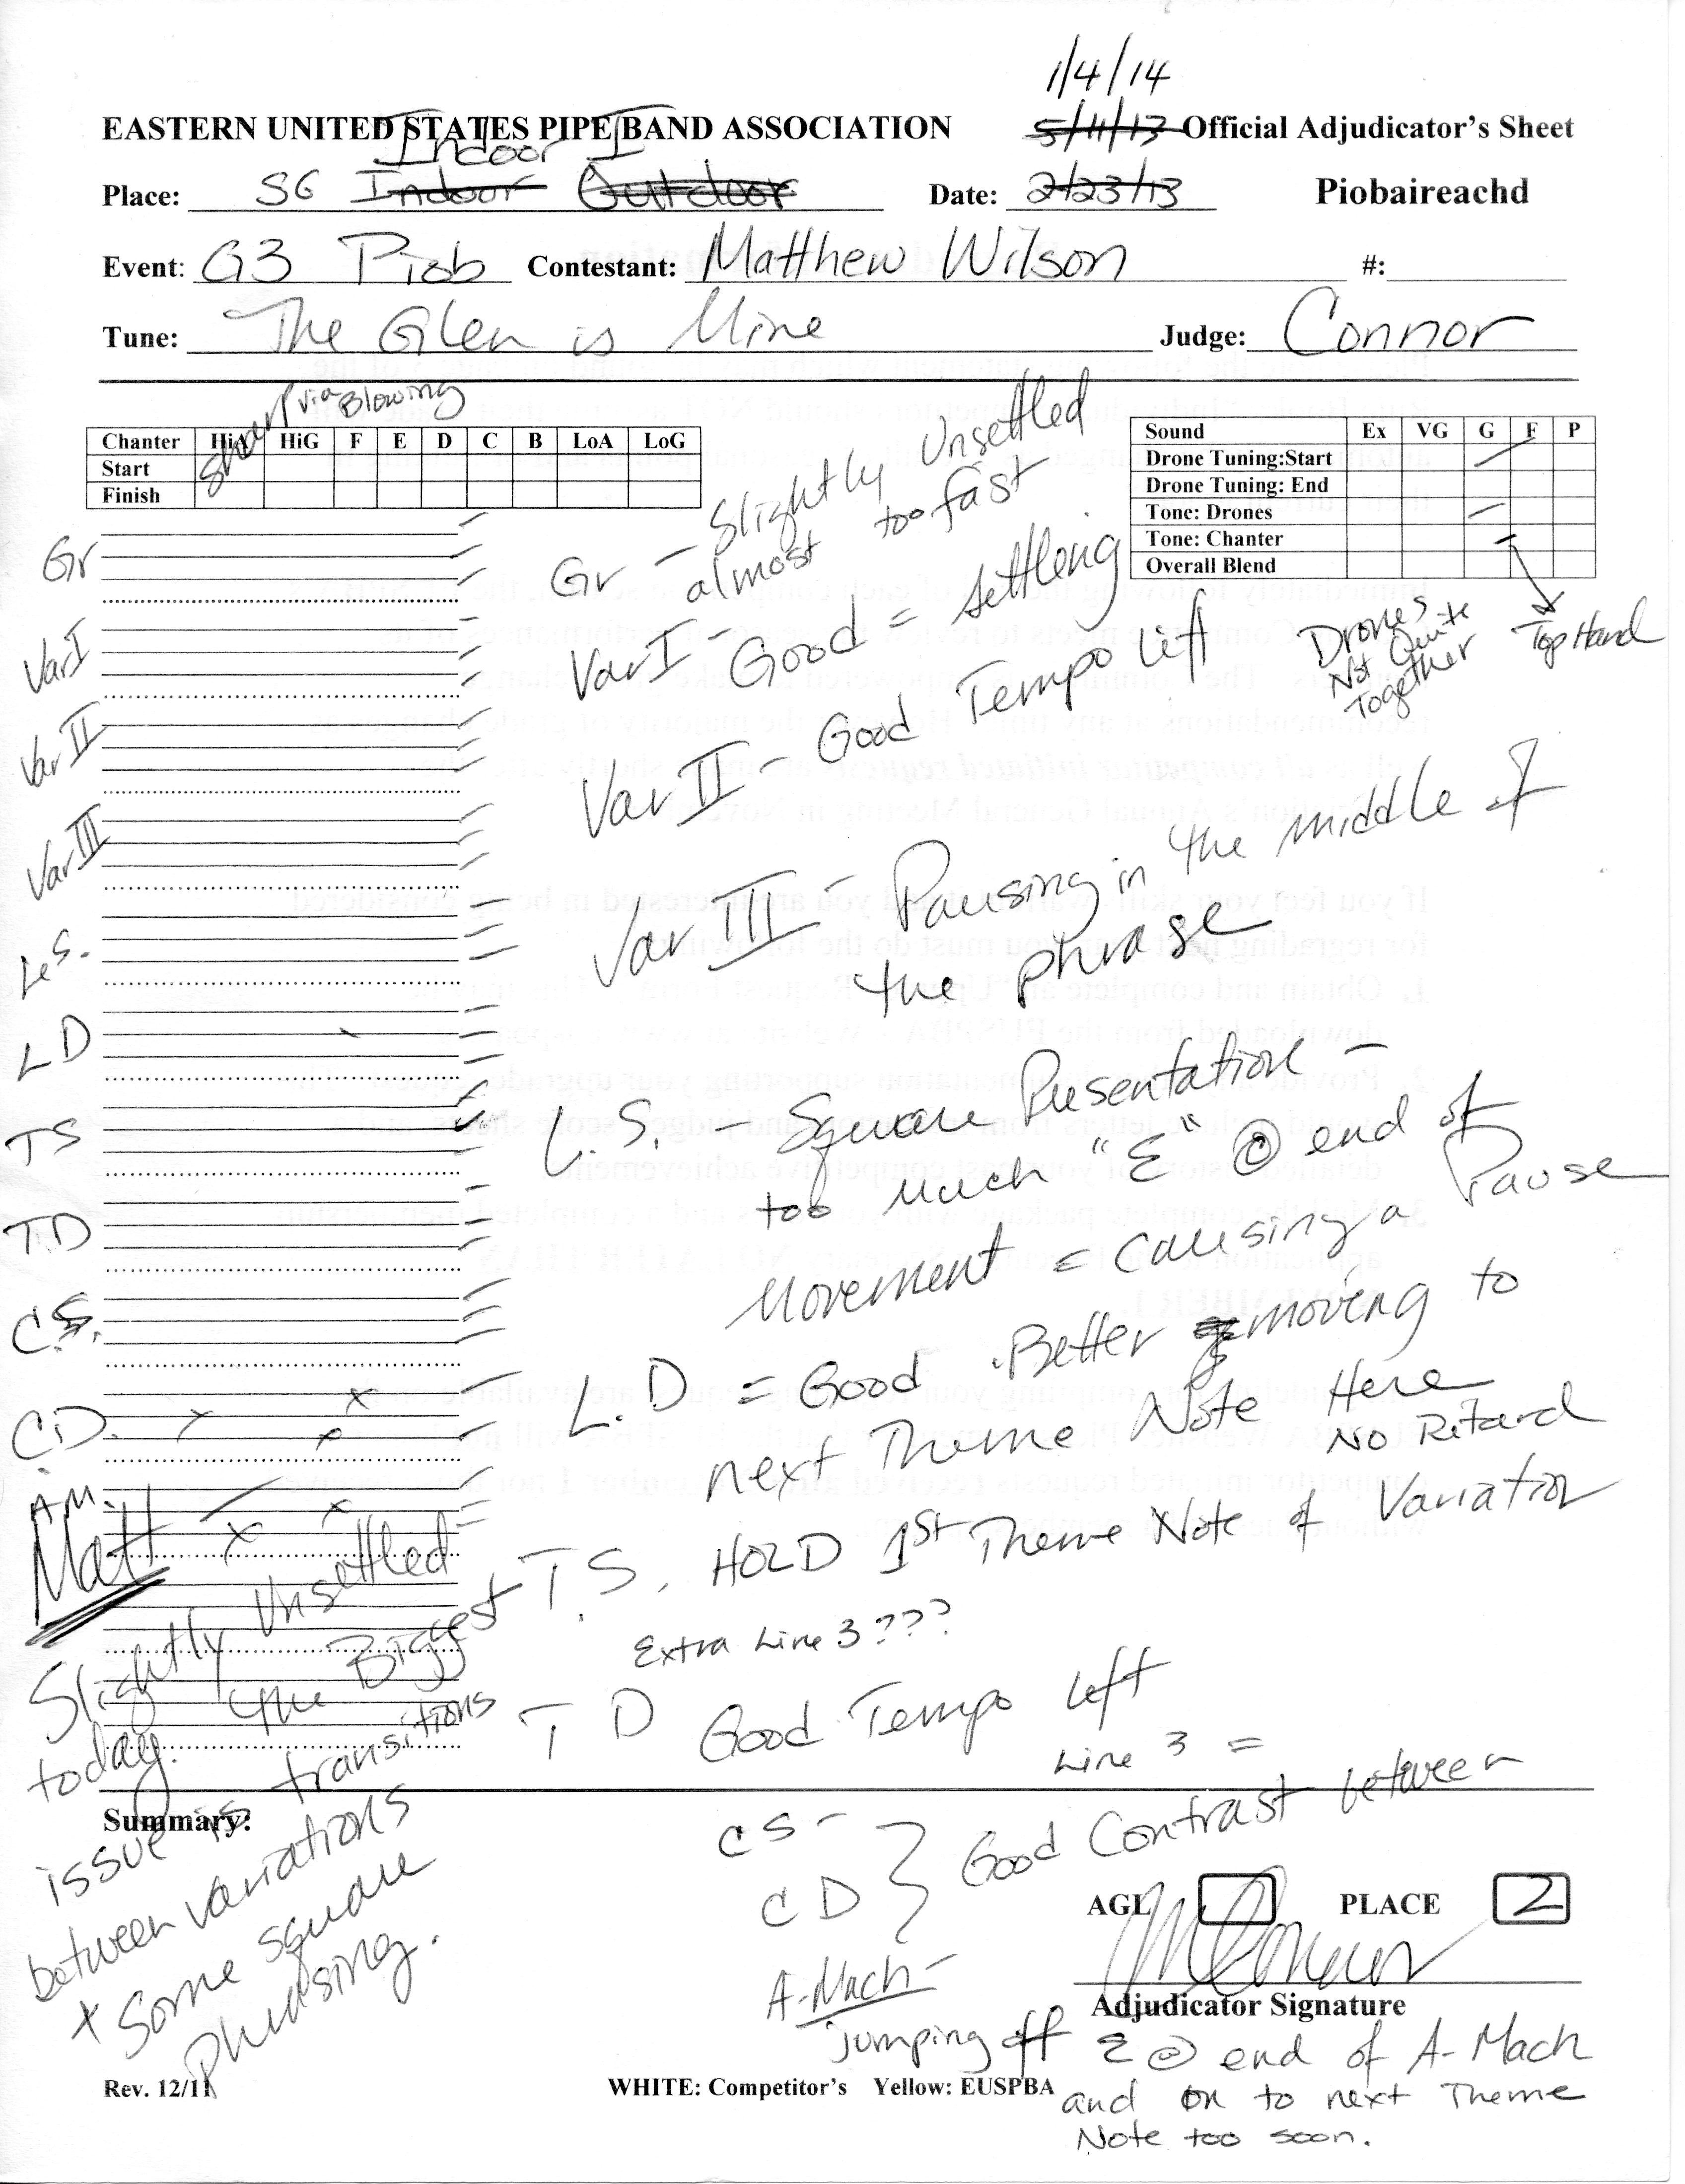 1/4/14
EASTERN UNITED STATES PIPE BAND ASSOCIATION 5/11/13 Official Adjudicator's Sheet
Indoor I
Place: SG Indoor Outdoor Date: 2/23/13 Piobaireachd
Event: G3 Piob Contestant: Matthew Wilson #:
Tune: The Glen is Mine Judge: Connor
Sharp via Blowing
Chanter HiA HiG F E D C B LoA LoG
Start
Finish
Sound Ex VG G F P
Drone Tuning:Start
Drone Tuning: End
Tone: Drones
Tone: Chanter
Overall Blend
Drones Not Quite Together
Top Hand
Gr
Var I
Var II
Var III
L.S.
LD
TS
TD
C.S.
C.D.
A.M.
Gr - Slightly Unsettled
almost too fast
Var I - Good = settling
Var II - Good Tempo Lift
Var III - Pausing in the middle of
the phrase
L.S. - Square Presentation -
too Much "E" @ end of
Movement = causing a Pause
L.D = Good. Better moving to
next Theme Note Here
No Ritard
T.S. HOLD 1st Theme Note of Variation
Extra Line 3???
T D Good Tempo Left
Line 3 =
CS -
CD } Good Contrast between
A-Mach -
jumping off E @ end of A-Mach
and on to next Theme
Note too soon.
Matt -
Slightly Unsettled
today. The Biggest
Summary:
issue is transitions
between variations
+ Some square
phrasing.
AGL PLACE 2
Adjudicator Signature
Rev. 12/11 WHITE: Competitor's Yellow: EUSPBA